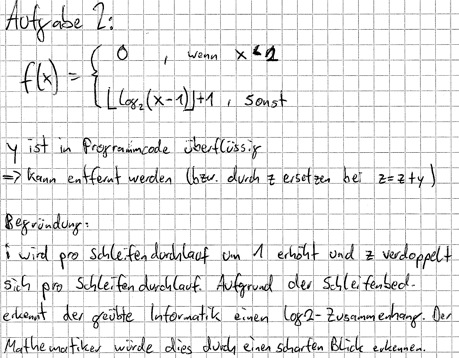 Aufgabe 2:
f(x) = { 0 , wenn x < 2
⌊log₂(x-1)⌋+1 , sonst
y ist in Programmcode überflüssig
=> kann entfernt werden (bzw. durch z ersetzen bei z=z+y)
Begründung:
i wird pro Schleifendurchlauf um 1 erhöht und z verdoppelt
sich pro Schleifendurchlauf. Aufgrund der Schleifenbed.
erkennt der geübte Informatik einen log2-Zusammenhang. Der
Mathematiker würde dies durch einen scharfen Blick erkennen.